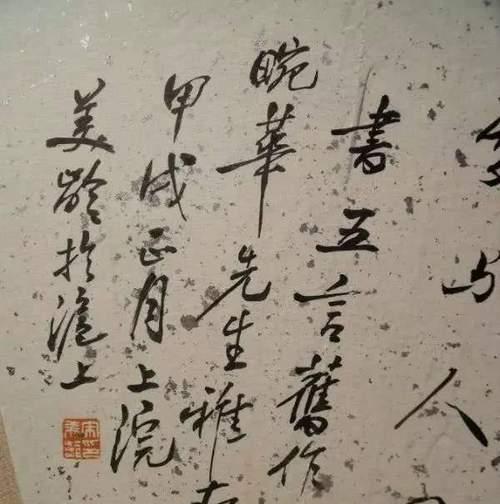 与人
書五言舊作
畹華先生雅
甲戌正月上浣
美齡於滬上